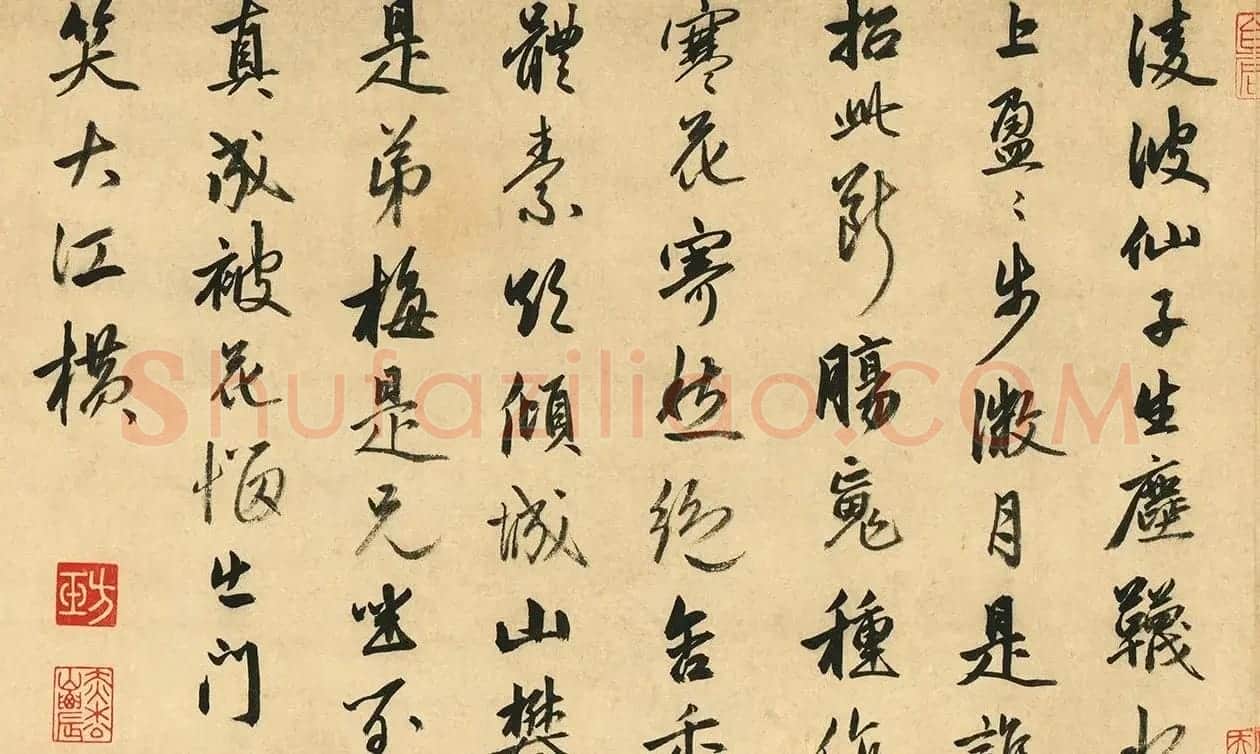 淩波仙子生塵韈水
上盈〻步微月是誰
招此斷腸魂種作
寒花寄愁絕含香
體素欲傾城山礬
是弟梅是兄坐對
真成被花惱出門
笑大江橫
Shufaziliao.COM